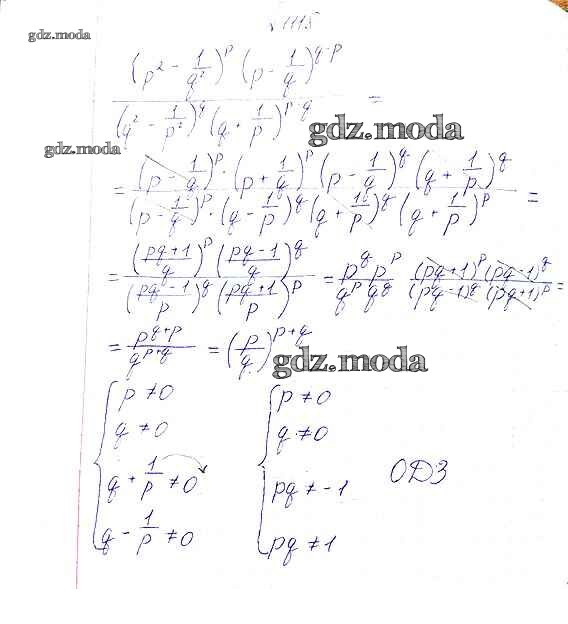 № 1115
gdz.moda
(p² - 1/q²)^p (p - 1/q)^(q-p)
/ (q² - 1/p²)^q (q + 1/p)^(p-q) =
gdz.moda
gdz.moda
= (p - 1/q)^p · (p + 1/q)^p (p - 1/q)^q (q + 1/p)^q
/ (p - 1/q)^p · (q - 1/p)^q (q + 1/p)^q (q + 1/p)^p =
= ((pq+1)/q)^p ((pq-1)/q)^q / ((pq-1)/p)^q ((pq+1)/p)^p = p^q p^p / q^p q^q (pq+1)^p (pq-1)^q / (pq-1)^q (pq+1)^p =
= p^(q+p) / q^(p+q) = (p/q)^(p+q)
gdz.moda
{ p ≠ 0
q ≠ 0
q + 1/p ≠ 0
q - 1/p ≠ 0
{ p ≠ 0
q ≠ 0
pq ≠ -1
pq ≠ 1
ОДЗ